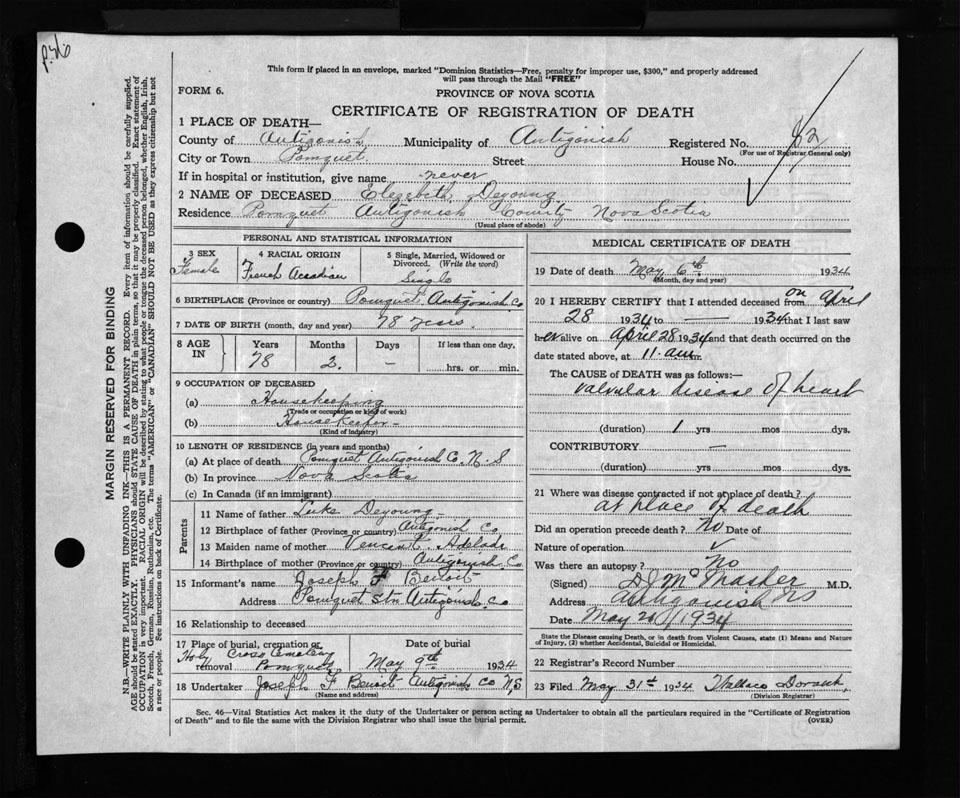 p.46
This form if placed in an envelope, marked "Dominion Statistics—Free, penalty for improper use, $300," and properly addressed
will pass through the Mail "FREE"
FORM 6.
PROVINCE OF NOVA SCOTIA
CERTIFICATE OF REGISTRATION OF DEATH
1 PLACE OF DEATH—
County of Antigonish Municipality of Antigonish Registered No. 82
(For use of Registrar General only)
City or Town Pomquet Street House No.
If in hospital or institution, give name never
2 NAME OF DECEASED Elezebeth Deyoung
Residence Pomquet Antigonish County Nova Scotia
(Usual place of abode)
PERSONAL AND STATISTICAL INFORMATION
3 SEX
Female
4 RACIAL ORIGIN
French Accadian
5 Single, Married, Widowed or
Divorced. (Write the word)
Single
6 BIRTHPLACE (Province or country) Pomquet Antigonish Co
7 DATE OF BIRTH (month, day and year) 78 years.
8 AGE IN
Years Months Days If less than one day,
78 2. – hrs. or min.
9 OCCUPATION OF DECEASED
(a) Housekeeping
(Trade or occupation or kind of work)
(b) Housekeeper –
(Kind of industry)
10 LENGTH OF RESIDENCE (in years and months)
(a) At place of death Pomquet Antigonish Co. N. S
(b) In province Nova Scotia
(c) In Canada (if an immigrant)
Parents
11 Name of father Luke Deyoung
12 Birthplace of father (Province or country) Antigonish Co
13 Maiden name of mother Vencent Adelade
14 Birthplace of mother (Province or country) Antigonish Co
15 Informant's name Joseph F Benoit
Address Pomquet Stn Antigonish Co
16 Relationship to deceased
17 Place of burial, cremation or Date of burial
Holy Cross Cemetery
removal Pomquet May 9th 1934
18 Undertaker Joseph F Benoit Antigonish Co N,S
(Name and address)
MEDICAL CERTIFICATE OF DEATH
19 Date of death May 6th 1934
(Month, day and year)
20 I HEREBY CERTIFY that I attended deceased from on april
28 1934 to — 1934 that I last saw
h er alive on april 28 1934 and that death occurred on the
date stated above, at 11 a.m.
The CAUSE of DEATH was as follows:—
valvular disease of heart
(duration) 1 yrs mos dys.
CONTRIBUTORY —
(duration) yrs. mos. dys.
21 Where was disease contracted if not at place of death?
at place of death
Did an operation precede death? no Date of
Nature of operation
Was there an autopsy? no
(Signed) McMaster M.D.
Address Antigonish NS
Date May 1934
State the Disease causing Death, or in death from Violent Causes, state (1) Means and Nature
of Injury, (2) whether Accidental, Suicidal or Homicidal.
22 Registrar's Record Number
23 Filed May 31st 1934 Wallace
(Division Registrar)
Sec. 46—Vital Statistics Act makes it the duty of the Undertaker or person acting as Undertaker to obtain all the particulars required in the "Certificate of Registration
of Death" and to file the same with the Division Registrar who shall issue the burial permit.
(OVER)
MARGIN RESERVED FOR BINDING
N.B.—WRITE PLAINLY WITH UNFADING INK—THIS IS A PERMANENT RECORD. Every item of information should be carefully supplied.
AGE should be stated EXACTLY. PHYSICIANS should STATE CAUSE OF DEATH in plain terms, so that it may be properly classified. Exact statement of
OCCUPATION is very important. RACIAL ORIGIN will be described by stating to what people or tongue the deceased person belonged, whether English, Irish,
Scotch, French, German, Russian, Ruthenian, etc. The terms "AMERICAN" or "CANADIAN" SHOULD NOT BE USED as they express citizenship but not
a race or people. See instructions on back of Certificate.